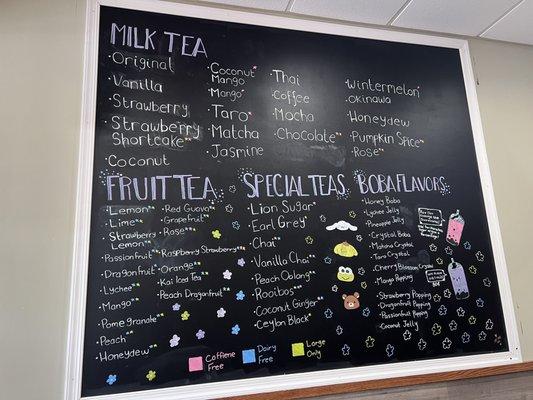 MILK TEA
·Original
·Vanilla
·Strawberry
·Strawberry
Shortcake**
·Coconut
·Coconut*
Mango
·Mango*
·Taro*
·Matcha
·Jasmine
·Thai
·Coffee
·Mocha
·Chocolate**
·Wintermelon*
·Okinawa
·Honeydew
·Pumpkin Spice**
·Rose**
FRUIT TEA
·Lemon**
·Lime**
·Strawberry**
Lemon**
·Passionfruit**
·Dragonfruit**
·Lychee**
·Mango**
·Pomegranate**
·Peach**
·Honeydew**
·Red Guava**
·Grapefruit**
·Rose**
·Raspberry Strawberry**
·Orange**
·Kai Iced Tea
·Peach Dragonfruit**
SPECIAL TEAS
·Lion Sugar**
·Earl Grey*
·Chai*
·Vanilla Chai**
·Peach Oolong*
·Rooibos**
·Coconut Ginger*
·Ceylon Black*
BOBA FLAVORS
·Honey Boba
·Lychee Jelly
·Pineapple Jelly
·Crystal Boba
·Matcha Crystal
·Taro Crystal
·Cherry Blossom Crystal
·Mango Popping
·Strawberry Popping
·Dragonfruit Popping
·Passionfruit Popping
·Coconut Jelly
Caffeine
Free
Dairy
Free
Large
Only